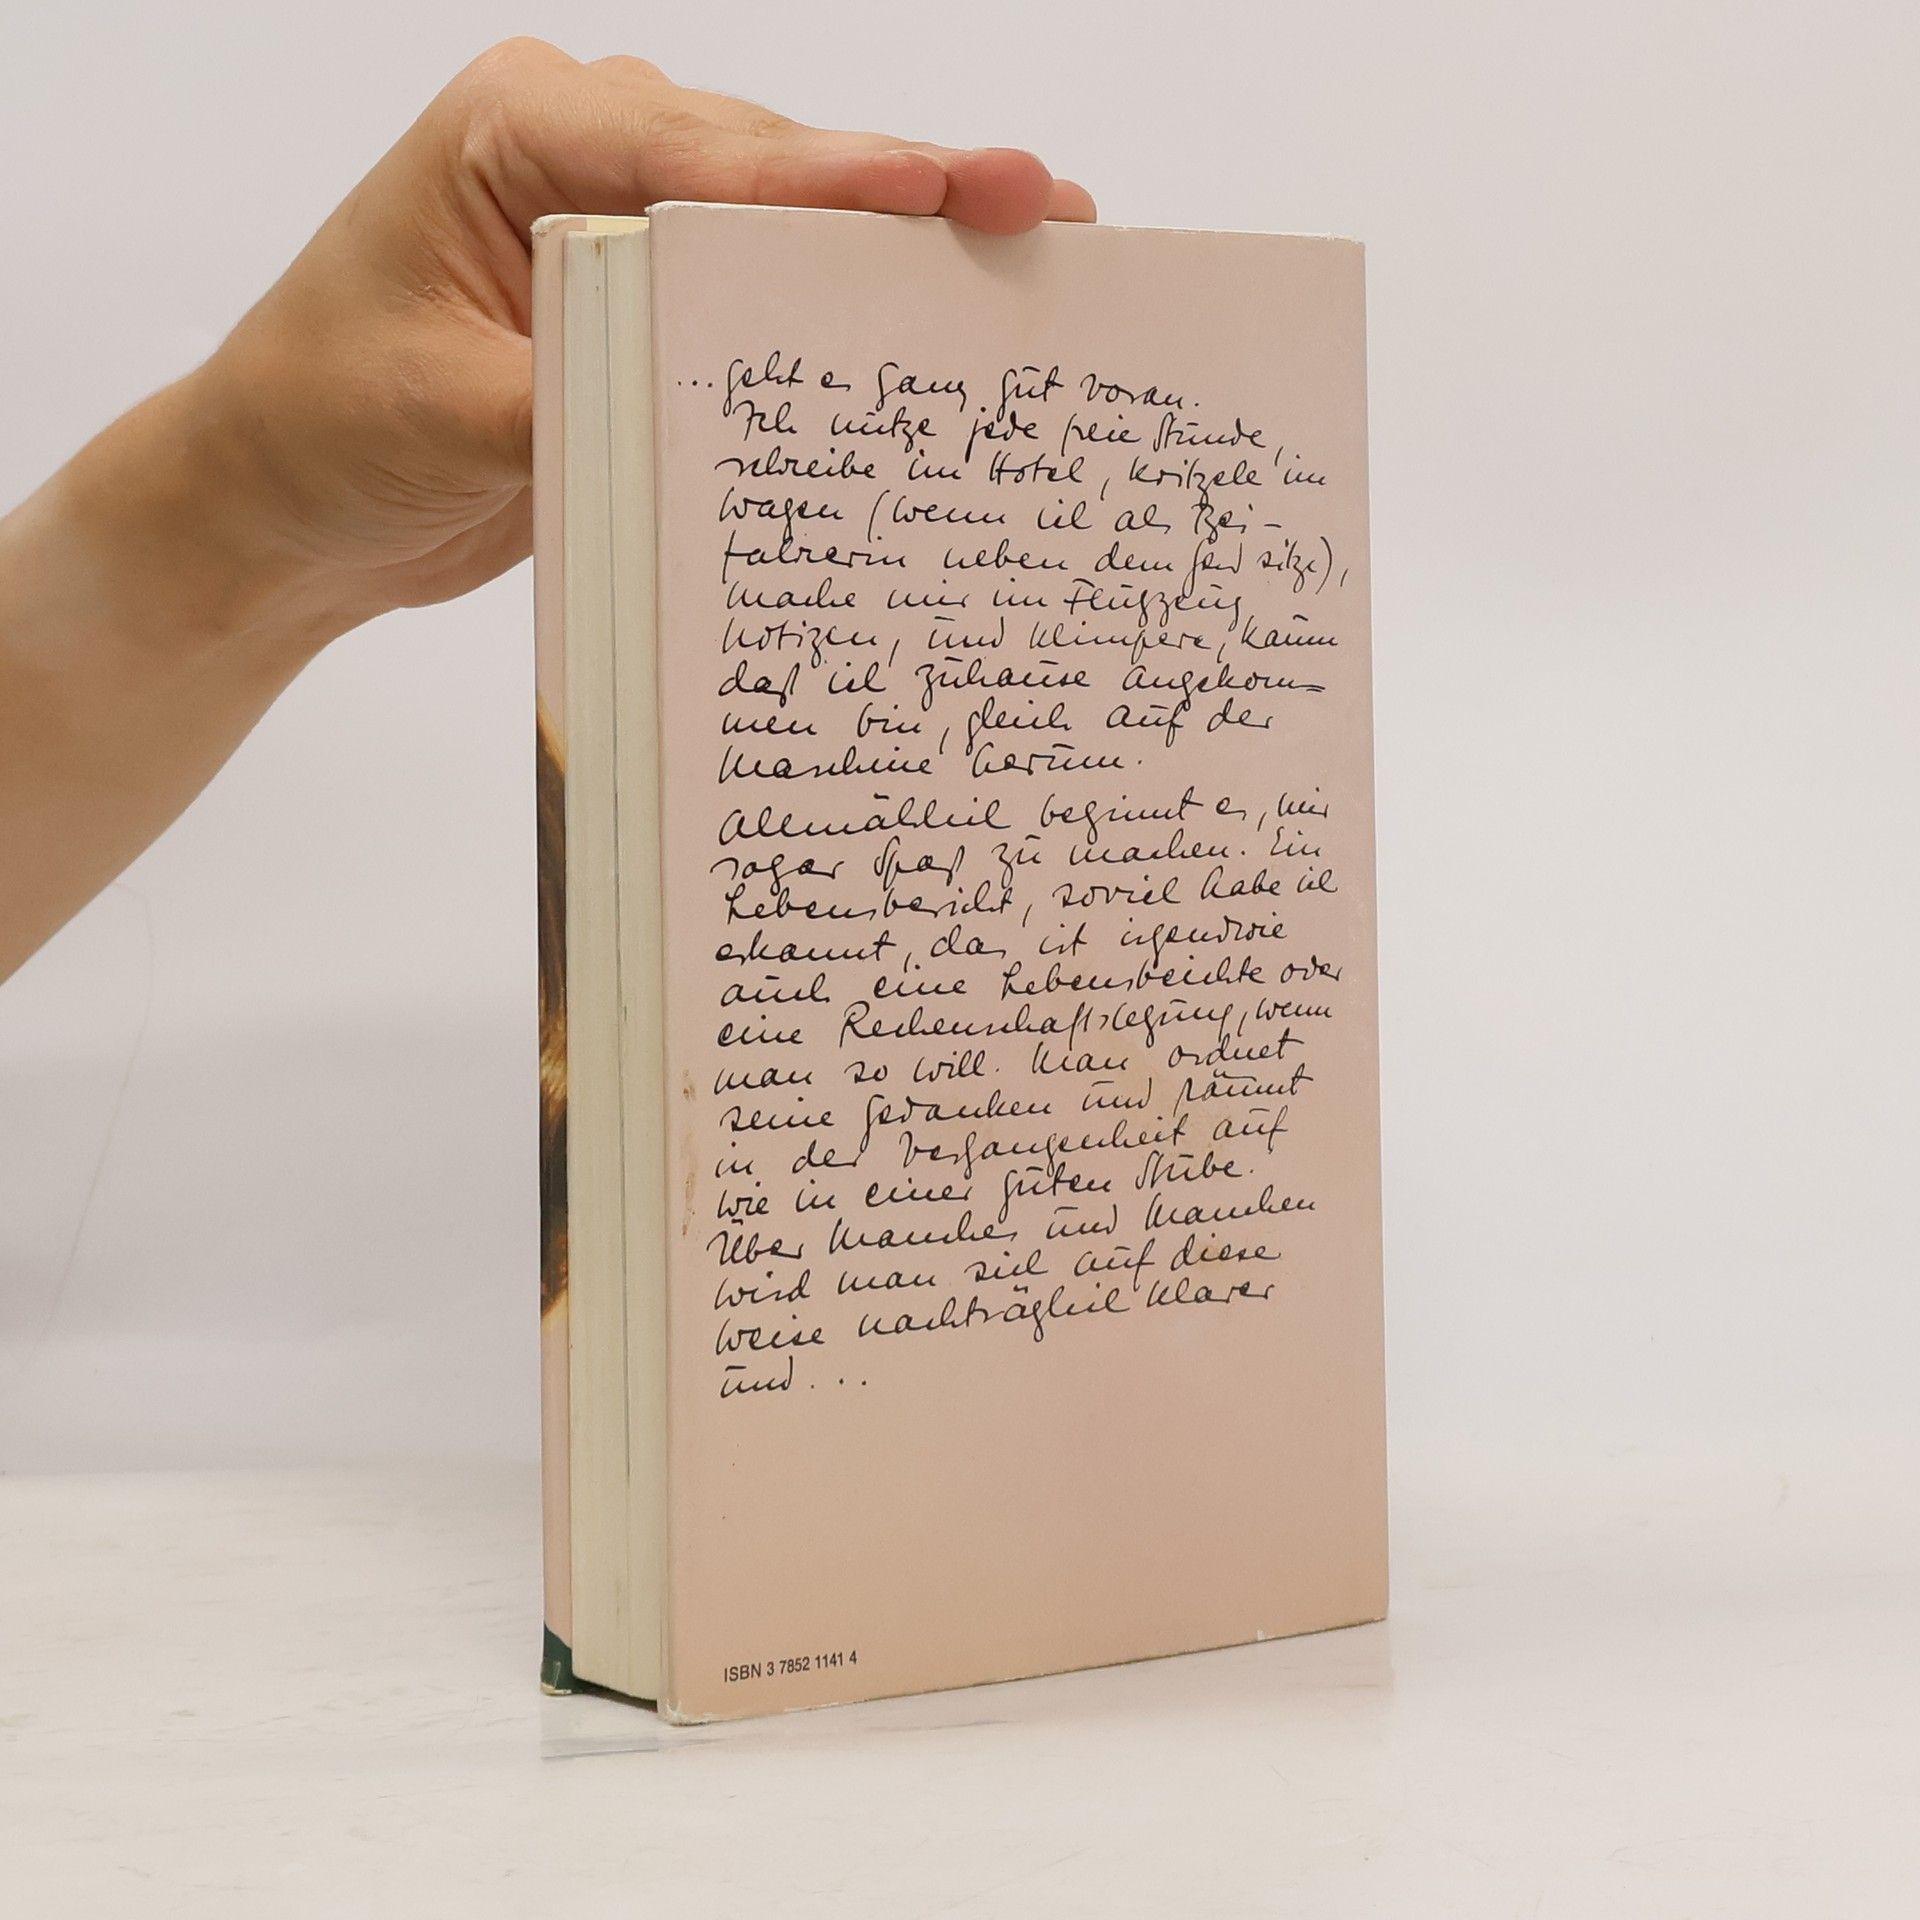 ...geht es ganz gut voran.
Ich nütze jede freie Stunde,
schreibe im Hotel, kritzele im
Wagen (wenn ich als Bei-
fahrerin neben dem Gerd sitze),
mache mir im Flugzeug
Notizen, und klimpere, kaum
daß ich zuhause angekom=
men bin, gleich auf der
Maschine herum.
Allmählich beginnt es, mir
sogar Spaß zu machen. Ein
Lebensbericht, soviel habe ich
erkannt, das ist irgendwie
auch eine Lebensbeichte oder
eine Rechenschaftslegung, wenn
man so will. Man ordnet
seine Gedanken und räumt
in der Vergangenheit auf
wie in einer guten Stube.
Über Manches und Manchen
wird man sich auf diese
Weise nachträglich klarer
und...
ISBN 3 7852 1141 4